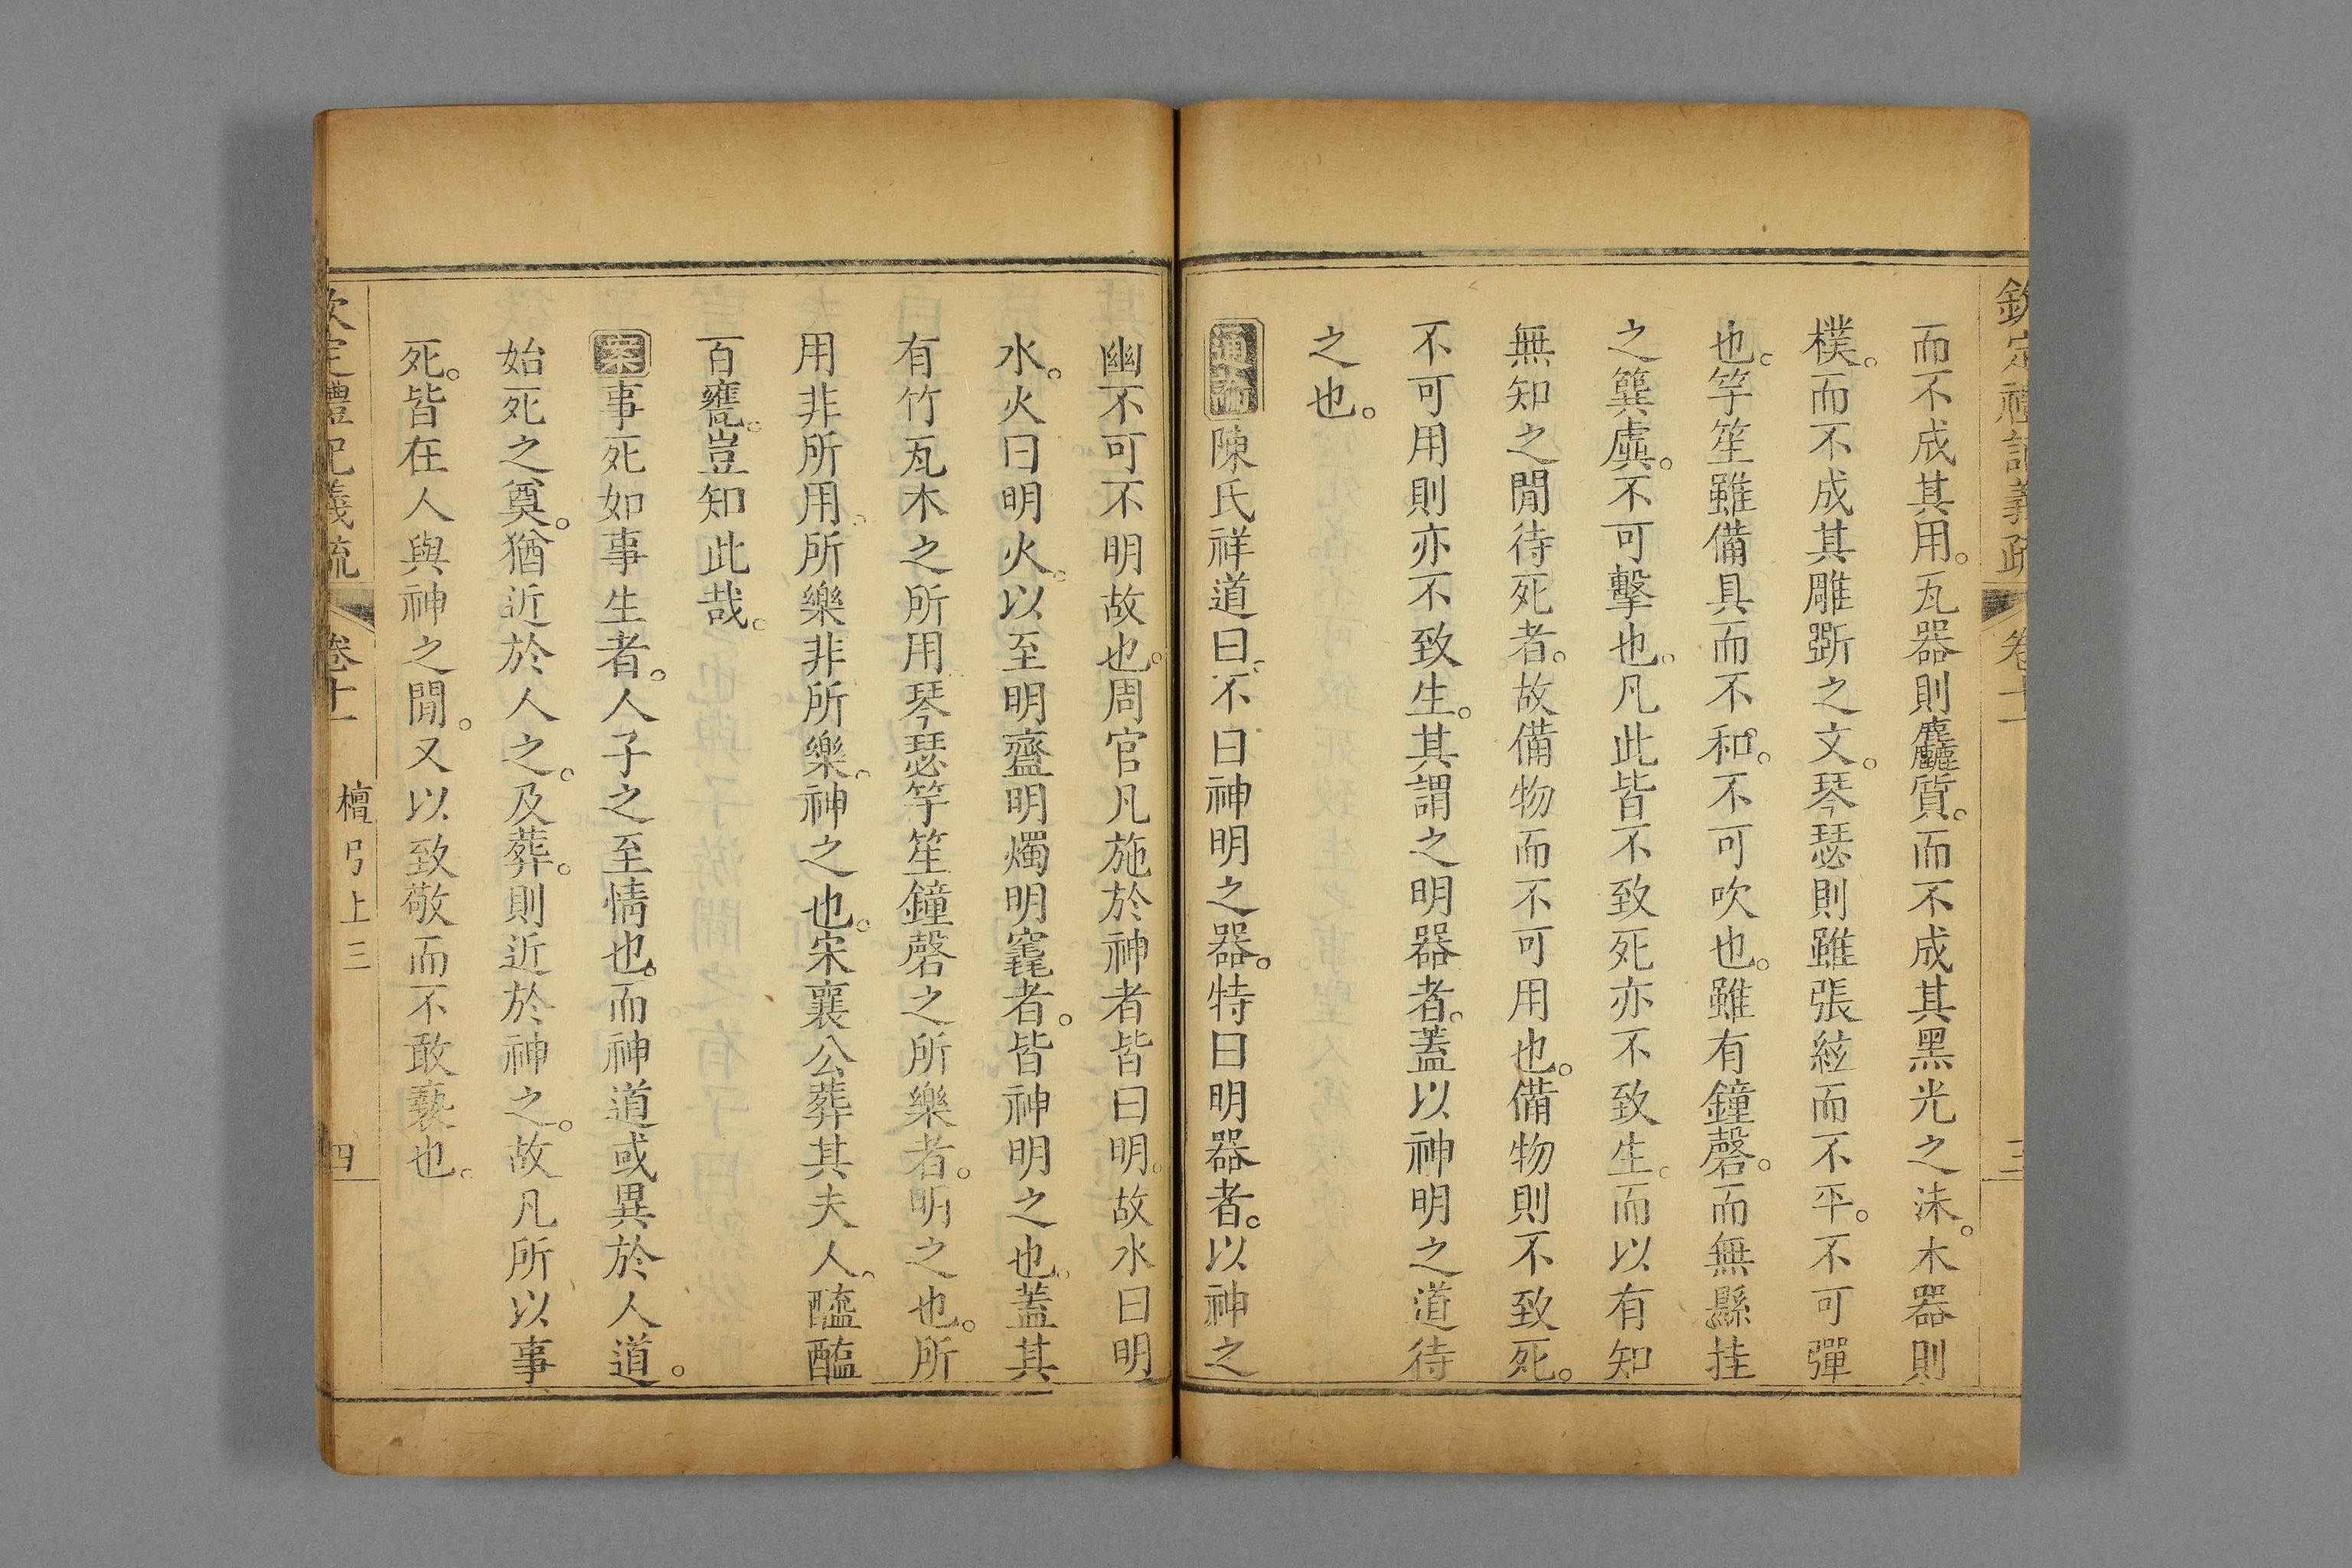 欽定禮記義疏 卷十一 三
而不成其用。瓦器則麤質。而不成其黑光之沬。木器則
樸。而不成其雕斵之文。琴瑟則雖張絃而不平。不可彈
也。竽笙雖備具而不和。不可吹也。雖有鐘磬。而無縣挂
之簨虡。不可擊也。凡此皆不致死亦不致生。而以有知
無知之閒待死者。故備物而不可用也。備物則不致死。
不可用則亦不致生。其謂之明器者。蓋以神明之道待
之也。
通論陳氏祥道曰。不曰神明之器。特曰明器者。以神之
幽不可不明故也。周官凡施於神者皆曰明。故水曰明
水。火曰明火。以至明齍明燭明竁者。皆神明之也。蓋其
有竹瓦木之所用。琴瑟竽笙鐘磬之所樂者。明之也。所
用非所用。所樂非所樂。神之也。宋襄公葬其夫人。醯醢
百罋。豈知此哉。
案事死如事生者。人子之至情也。而神道或異於人道。
始死之奠。猶近於人之。及葬。則近於神之。故凡所以事
死。皆在人與神之閒。又以致敬而不敢褻也。
欽定禮記義疏 卷十一 檀弓上三 四